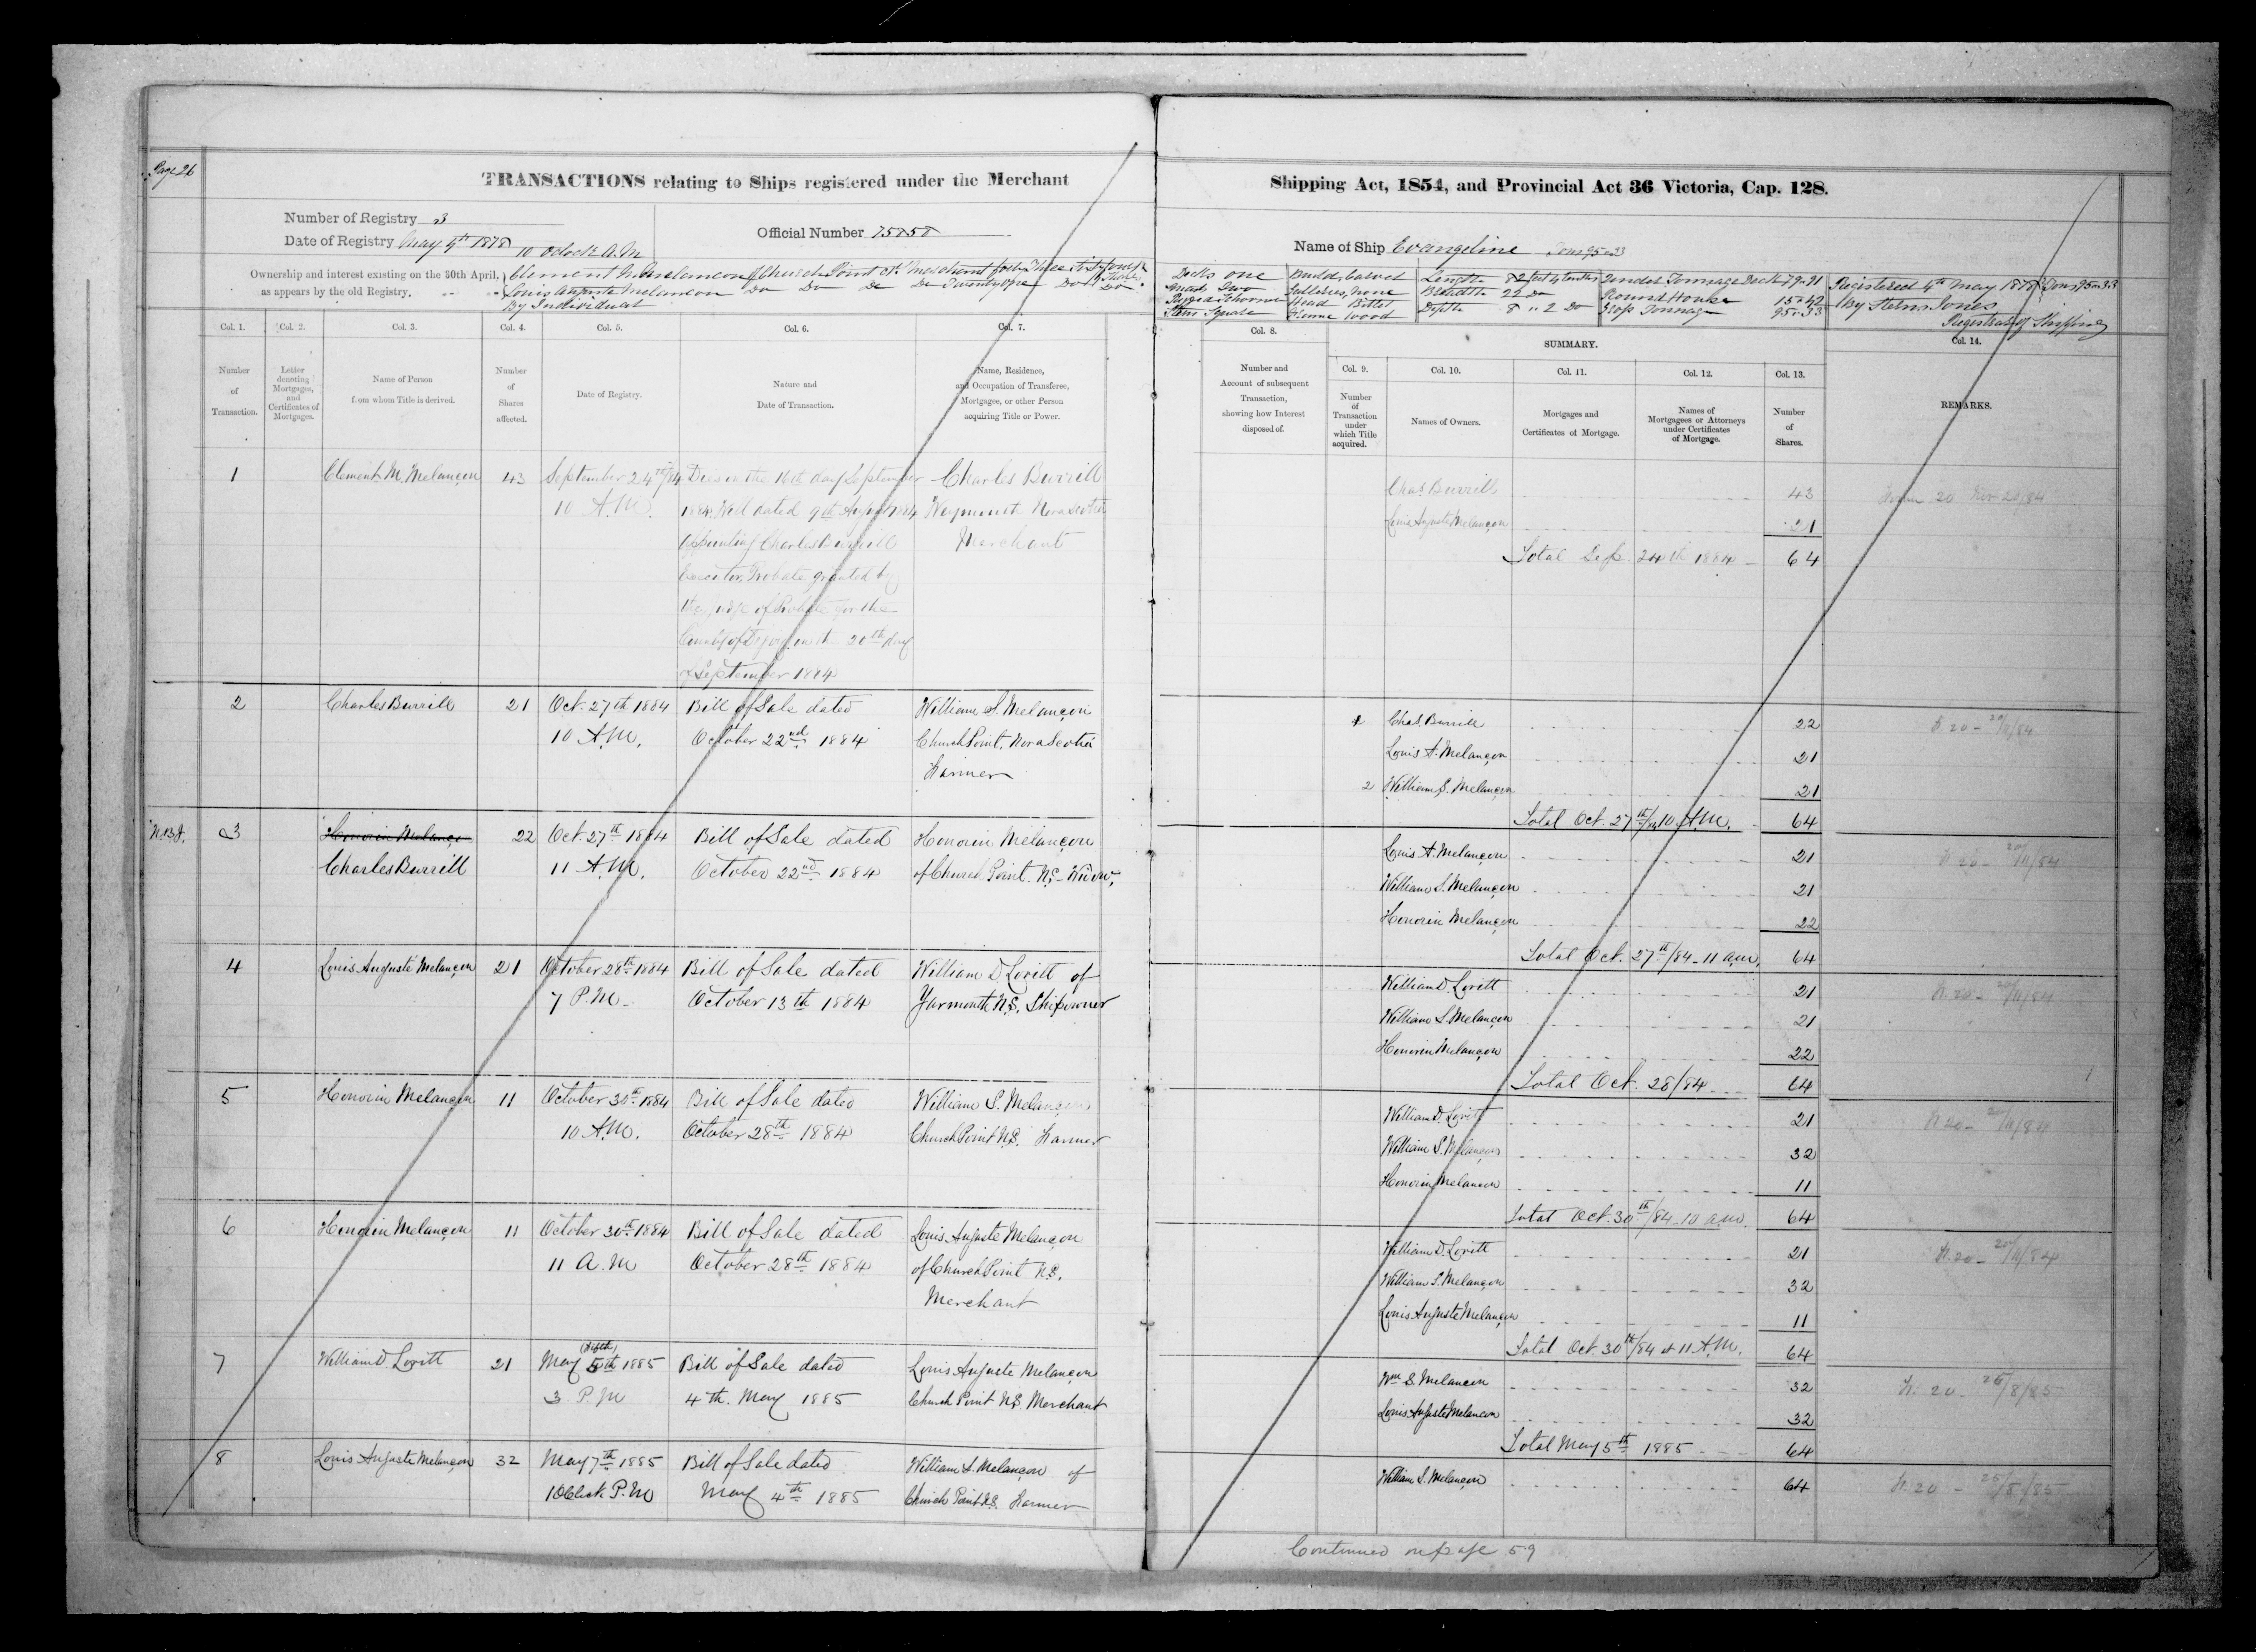 Page 26
TRANSACTIONS relating to Ships registered under the Merchant
Number of Registry 3
Date of Registry May 4th 1878 10 Oclock A.M
Official Number 75858
Ownership and interest existing on the 30th April,
as appears by the old Registry.
Clement M. Melancon of Church Point Merchant forty Three sixty fourth Shares
Louis Auguste Melancon Do Do Do Do Twenty one Do Do
By Individual
Col. 1. Col. 2. Col. 3. Col. 4. Col. 5. Col. 6. Col. 7.
Number of Transaction.
Letter denoting Mortgages, and Certificates of Mortgages.
Name of Person from whom Title is derived.
Number of Shares affected.
Date of Registry.
Nature and Date of Transaction.
Name, Residence, and Occupation of Transferee, Mortgagee, or other Person acquiring Title or Power.
1 Clement M. Melançon 43 September 24th/84 Dies on the 16th day September Charles Burrill
10 A.M. 1884, Will dated 9th August 1884 Weymouth Nova Scotia
Appointing Charles Burrill Merchant
Executor, Probate granted by
the judge of Probate for the
County of Digby on the 20th day
of September 1884
2 Charles Burrill 21 Oct. 27th 1884 Bill of Sale dated William S. Melançon
10 A.M. October 22nd 1884 Church Point, Nova Scotia
Farmer
3 Honorin Melançon 22 Oct. 27th 1884 Bill of Sale dated Honorin Melançon
Charles Burrill 11 A.M. October 22nd 1884 of Church Point. N.S. Widow,
4 Louis Auguste Melançon 21 October 28th 1884 Bill of Sale dated William D. Lovitt of
7 P.M. October 13th 1884 Yarmouth N.S. Shipowner
5 Honorin Melançon 11 October 30th 1884 Bill of Sale dated William S. Melançon
10 A.M. October 28th 1884 Church Point N.S. Farmer
6 Honorin Melançon 11 October 30th 1884 Bill of Sale dated Louis Auguste Melançon
11 A.M October 28th 1884 of Church Point N.S.
Merchant
7 William D. Lovitt 21 May 5th (fifth) 1885 Bill of Sale dated Louis Auguste Melançon
3 P.M 4th. May 1885 Church Point N.S. Merchant
8 Louis Auguste Melançon 32 May 7th 1885 Bill of Sale dated William S. Melançon of
1 OClock P.M May 4th 1885 Church Point N.S. Farmer
Shipping Act, 1854, and Provincial Act 36 Victoria, Cap. 128.
Name of Ship Evangeline Tons 95.33
Decks One Build, Carvel Length 82 feet 4 tenths Under Tonnage Deck 79.91
Masts Two Galleries, None Breadth 22 Do Round House 15.42
Rigged Schooner Head Billet Depth 8 .. 2 Do Gross Tonnage 95.33
Stern Square Frame Wood
Registered 4th May 1878 Tons 95.33
By Registrar of Shipping
Col. 8.
SUMMARY.
Col. 14.
Number and Account of subsequent Transaction, showing how Interest disposed of.
Col. 9. Col. 10. Col. 11. Col. 12. Col. 13.
Number of Transaction under which Title acquired.
Names of Owners.
Mortgages and Certificates of Mortgage.
Names of Mortgagees or Attorneys under Certificates of Mortgage.
Number of Shares.
REMARKS.
Chas. Burrill 43 Form 20 Nov 20/84
Louis Auguste Melançon 21
Total Sep. 24th 1884 64
1 Chas. Burrill 22 F. 20 - 20/11/84
Louis A. Melançon 21
2 William S. Melançon 21
Total Oct. 27th/84 10 A.M. 64
Louis A. Melançon 21 F. 20 - 20/11/84
William S. Melançon 21
Honorin Melançon 22
Total Oct. 27th/84 - 11 a.m. 64
William D. Lovitt 21 F. 20 - 20/11/84
William S. Melançon 21
Honorin Melançon 22
Total Oct. 28/84 64
William D. Lovitt 21 F. 20 - 20/11/84
William S. Melançon 32
Honorin Melancon 11
Total Oct. 30th/84 - 10 a.m. 64
William D. Lovitt 21 F. 20 - 20/11/84
William S. Melançon 32
Louis Auguste Melançon 11
Total Oct. 30th/84 at 11 A.M. 64
Wm S. Melancon 32 F. 20 -
Louis Auguste Melancon 32
Total May 5th 1885 64
William S. Melançon 64 F. 20 -
Continued on page 59